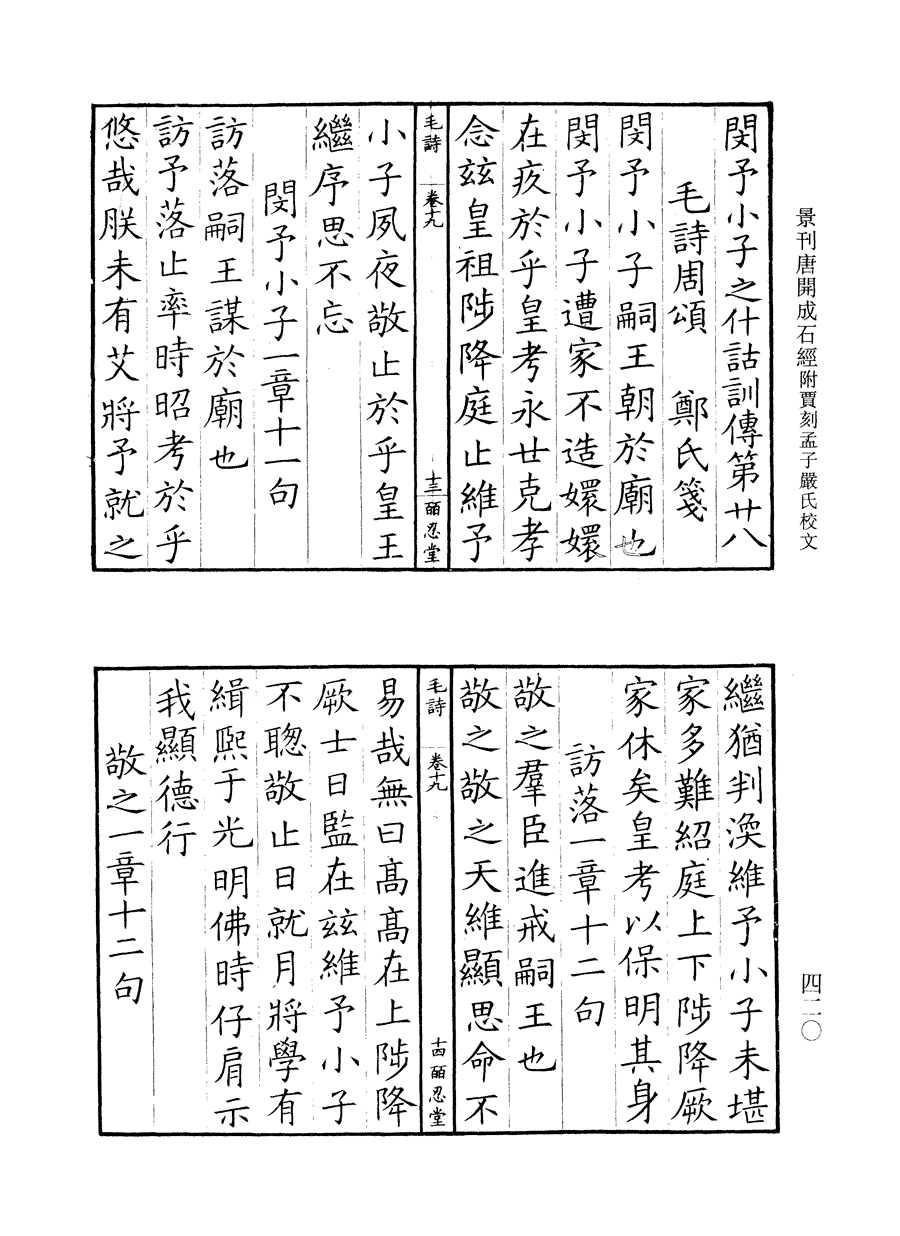 景刊唐開成石經附賈刻孟子嚴氏校文
閔予小子之什詁訓傳第廿八
毛詩周頌　鄭氏箋
閔予小子嗣王朝於廟也
閔予小子遭家不造嬛嬛
在疚於乎皇考永廿克孝
念兹皇祖陟降庭止維予
毛詩　卷十九　十三　皕忍堂
小子夙夜敬止於乎皇王
繼序思不忘
閔予小子一章十一句
訪落嗣王謀於廟也
訪予落止率時昭考於乎
悠哉朕未有艾將予就之
繼猶判渙維予小子未堪
家多難紹庭上下陟降厥
家休矣皇考以保明其身
訪落一章十二句
敬之羣臣進戒嗣王也
敬之敬之天維顯思命不
毛詩　卷十九　十四　皕忍堂
易哉無曰髙髙在上陟降
厥士日監在兹維予小子
不聦敬止日就月將學有
緝熙于光明佛時仔肩示
我顯德行
敬之一章十二句
四二〇